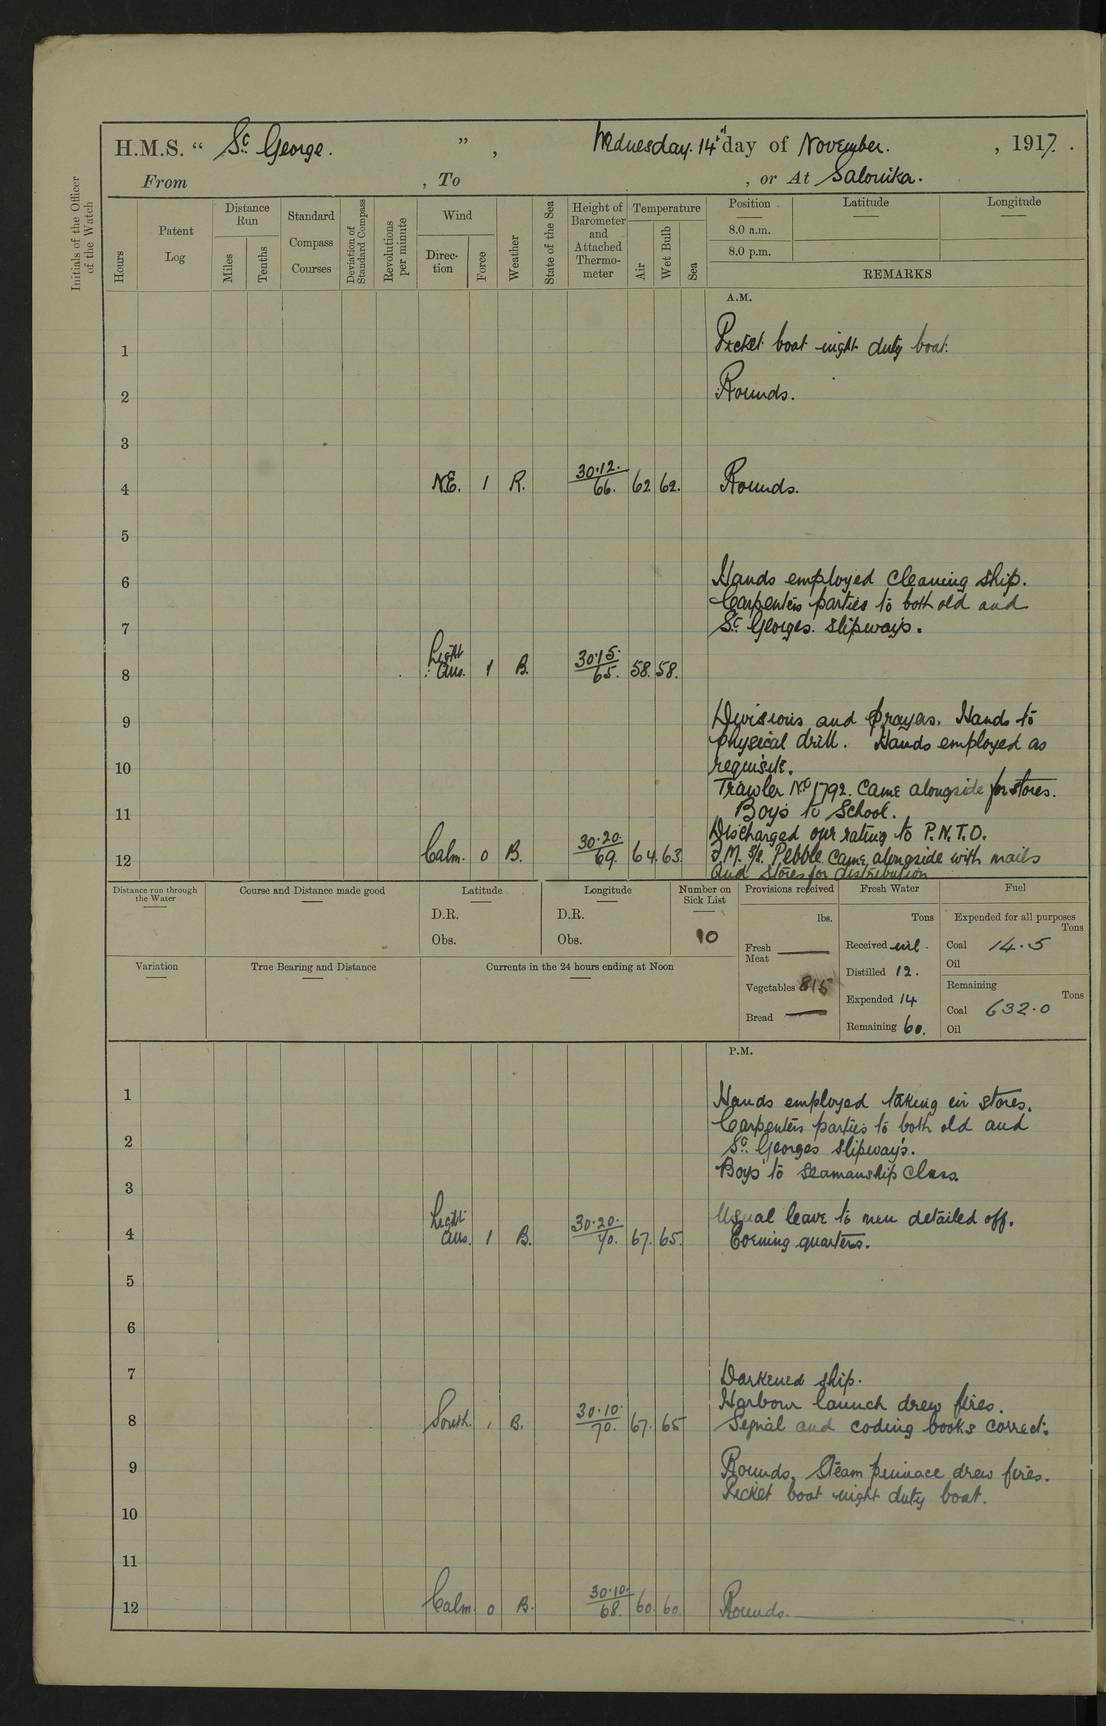 H.M.S. “ St. George. ” , Wednesday. 14th day of November. , 1917.
From , To , or At Salonika.
Initials of the Officer of the Watch
Hours
Patent Log
Distance Run
Miles
Tenths
Standard Compass Courses
Deviation of Standard Compass
Revolutions per minute
Wind
Direction
Force
Weather
State of the Sea
Height of Barometer and Attached Thermometer
Temperature
Air
Wet Bulb
Sea
Position Latitude Longitude
8.0 a.m.
8.0 p.m.
REMARKS
A.M.
1 Picket boat night duty boat.
2 Rounds.
3
4 N.E. 1 R. 30.12. 66. 62 62. Rounds.
5
6 Hands employed cleaning ship.
Carpenters parties to both old and
7 St. Georges. slipways.
8 Light Airs. 1 B. 30.15. 65. 58. 58.
9 Divisions and prayers. Hands to
physical drill. Hands employed as
10 requisite.
Trawler No 1792. Came alongside for stores.
11 Boys to School.
Discharged our rating to P.N.T.O.
12 Calm. 0 B. 30.20. 69. 64. 63. S/S. Pebble came alongside with mails
and stores for distribution
Distance run through the Water
Course and Distance made good
Latitude
D.R.
Obs.
Longitude
D.R.
Obs.
Number on Sick List
10
Provisions received
lbs.
Fresh Meat —
Vegetables 815
Bread —
Fresh Water
Tons
Received nil.
Distilled 12.
Expended 14
Remaining 60.
Fuel
Expended for all purposes
Tons
Coal 14.5
Oil
Remaining
Tons
Coal 632.0
Oil
Variation
True Bearing and Distance
Currents in the 24 hours ending at Noon
P.M.
1 Hands employed taking in stores.
Carpenters parties to both old and
2 St. Georges slipways.
Boys to Seamanship Class.
3
Usual leave to men detailed off.
4 Light Airs. 1 B. 30.20. 70. 67. 65. Evening quarters.
5
6
7 Darkened ship.
Harbour launch drew fires.
8 South. 1 B. 30.10. 70. 67. 65 Signal and coding books correct.
9 Rounds. Steam pinnace drew fires.
Picket boat night duty boat.
10
11
12 Calm. 0 B. 30.10. 68. 60. 60. Rounds.